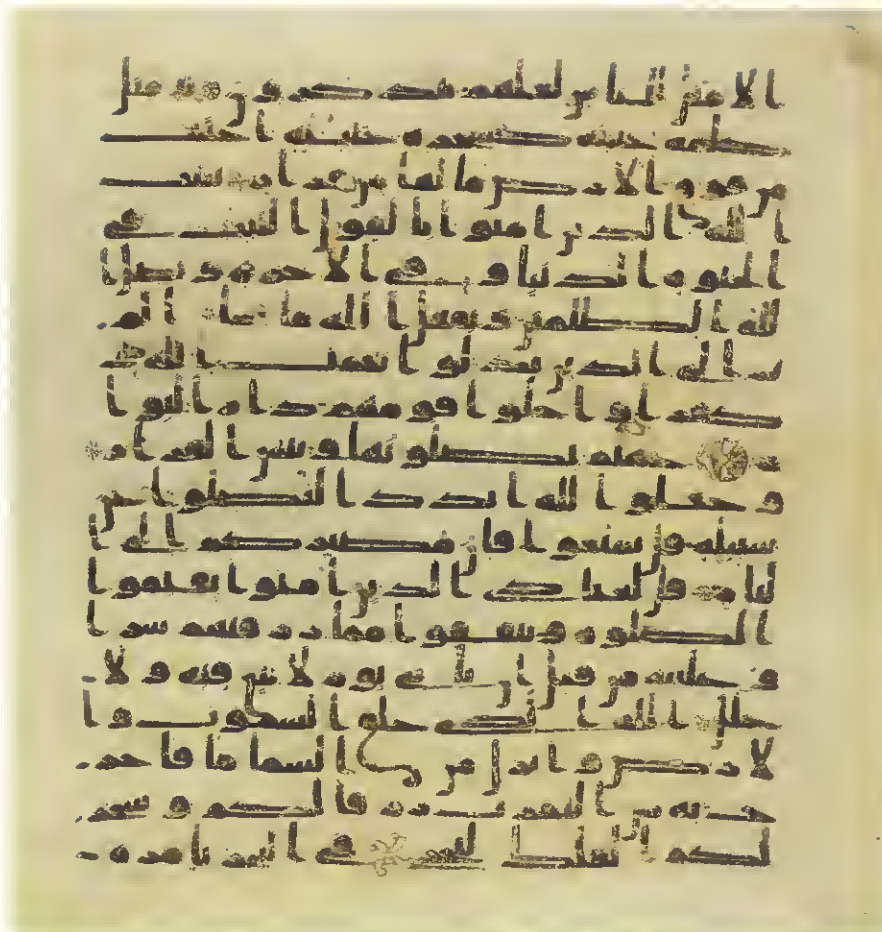 الامثل للناس لعلهم يتذكرون ومثل
كلمه خبيثه كشجره خبيثه اجتثت
من فوق الارض ما لها من قرار يثبت
الله الذين امنوا بالقول الثبت في
الحيوه الدنيا وفي الاخره ويضل ا
لله الظلمين ويفعل الله ما يشا الم تر
الى الذين بدلوا نعمت الله
كفرا واحلوا قومهم دار البوا
ر جهنم يصلونها وبئس القرار
وجعلوا لله اندادا ليضلوا عن
سبيله قل تمتعوا فان مصيركم الى ا
لنار قل لعبادي الذين امنوا يقيموا
الصلوه وينفقوا مما رزقنهم سرا
وعلنيه من قبل ان ياتي يوم لا بيع فيه ولا
خلل الله الذي خلق السموت وا
لارض وانزل من السما ما فاخر
ج به من الثمرت رزقا لكم وسخر
لكم الفلك لتجري في البحر بامره و